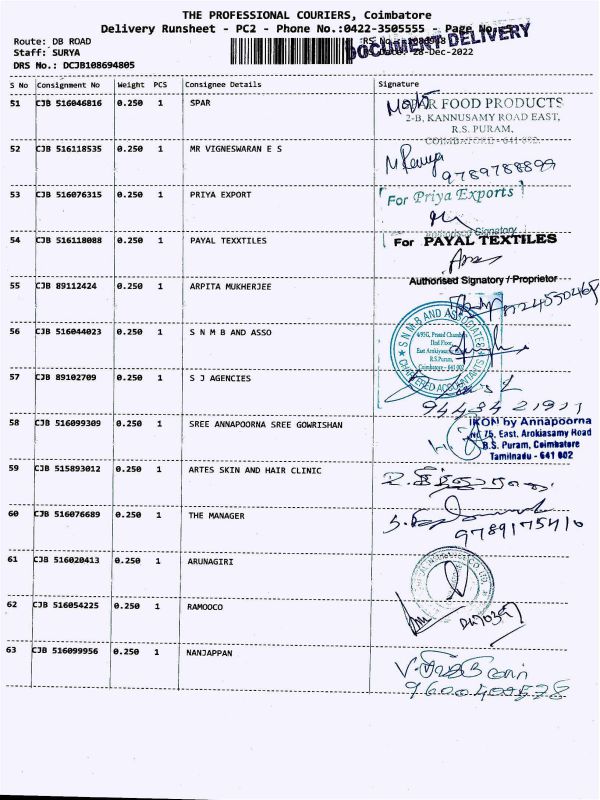 THE PROFESSIONAL COURIERS, Coimbatore
Delivery Runsheet - PC2 - Phone No.:0422-3505555 - Page No.
Route: DB ROAD
Staff: SURYA
28-Dec-2022
DOCUMENT DELIVERY
DRS No.: DCJB108694805
S No Consignment No Weight PCS Consignee Details Signature
51 CJB 516046816 0.250 1 SPAR
FOOD PRODUCTS
2-B, KANNUSAMY ROAD EAST,
R.S. PURAM,
COIMBATORE - 641 002.
52 CJB 516118535 0.250 1 MR VIGNESWARAN E S
9789788899
53 CJB 516076315 0.250 1 PRIYA EXPORT
For Priya Exports
Authorised Signatory
54 CJB 516118088 0.250 1 PAYAL TEXXTILES
For PAYAL TEXTILES
Authorised Signatory / Proprietor
55 CJB 89112424 0.250 1 ARPITA MUKHERJEE
56 CJB 516044023 0.250 1 S N M B AND ASSO
S N M B AND ASSOCIATES
IInd Floor,
East Arokiyasamy
R.S.Puram,
Coimbatore - 641 002
CHARTERED ACCOUNTANTS
57 CJB 89102709 0.250 1 S J AGENCIES
58 CJB 516099309 0.250 1 SREE ANNAPOORNA SREE GOWRISHAN
IKON by Annapoorna
75, East. Arokiasamy Road
R.S. Puram, Coimbatore
Tamilnadu - 641 002
59 CJB 515893012 0.250 1 ARTES SKIN AND HAIR CLINIC
60 CJB 516076689 0.250 1 THE MANAGER
9789175410
61 CJB 516020413 0.250 1 ARUNAGIRI
62 CJB 516054225 0.250 1 RAMOOCO
63 CJB 516099956 0.250 1 NANJAPPAN